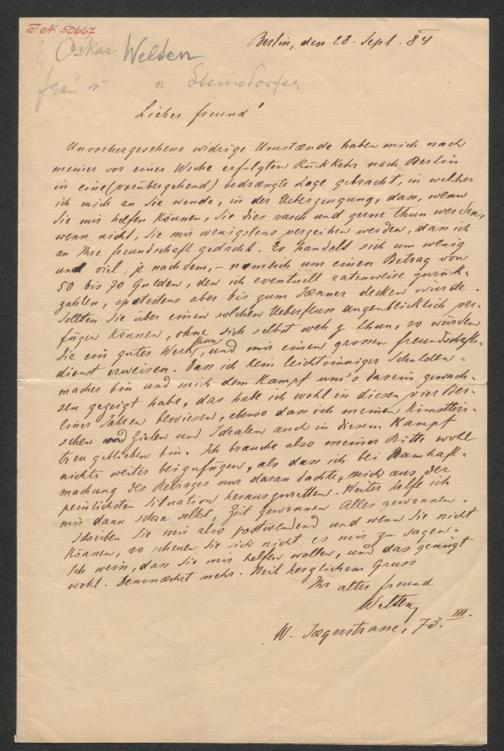 I.N. 50667
Oskar Welten
Frau v. n Steinsdorfer
Berlin, den 28. Sept. 84
Lieber Freund!
Unvorhergesehene widrige Umstände haben mich nach
meiner vor einer Woche erfolgten Rückkehr nach Berlin
in eine (vorübergehend) bedrängte Lage gebracht, in welcher
ich mich an Sie wende, in der Ueberzeugung, dass, wenn
Sie mir helfen können, Sie dies rasch und gerne thun werden,
wenn nicht, Sie mir wenigstens verzeihen werden, dass ich
an Ihre Freundschaft gedacht. Es handelt sich um wenig
und viel, je nachdem, – nämlich um einen Betrag von
50 bis 70 Gulden, den ich eventuell ratenweise zurück-
zahlen, spätestens aber bis zum Jänner decken würde.
Sollten Sie über einen solchen Ueberfluss augenblicklich ver-
fügen können, ohne sich selbst weh z thun, so würden
Sie ein gutes Werk thun, und mir einen grossen Freundschafts-
dienst erweisen. Dass ich kein leichtsinniger Schulden-
macher bin und mich dem Kampf um's Dasein gewach-
sen gezeigt habe, das habe ich wohl in diesen vier Ber-
liner Jahren bewiesen, ebenso dass ich meinen künstleri-
schen Zielen und Idealen auch in diesem Kampf
treu geblieben bin. Ich brauche also meiner Bitte wohl
nichts weiter beizufügen, als dass ich bei Namhaft-
machung des Betrages nur daran dachte, mich aus der
peinlichsten Situation herauszuretten. Weiter helfe ich
mir dann schon selbst, Zeit gewonnen Alles gewonnen.
Schreiben Sie mir also postwendend und wenn Sie nicht
können, so scheuen Sie sich nicht es mir zu sagen.
Ich weiss, dass Sie mir helfen wollen, und das genügt
wohl. Demnächst mehr. Mit herzlichem Gruss
Ihr alter Freund
Welten
W. Jægerstrasse, 73. III.